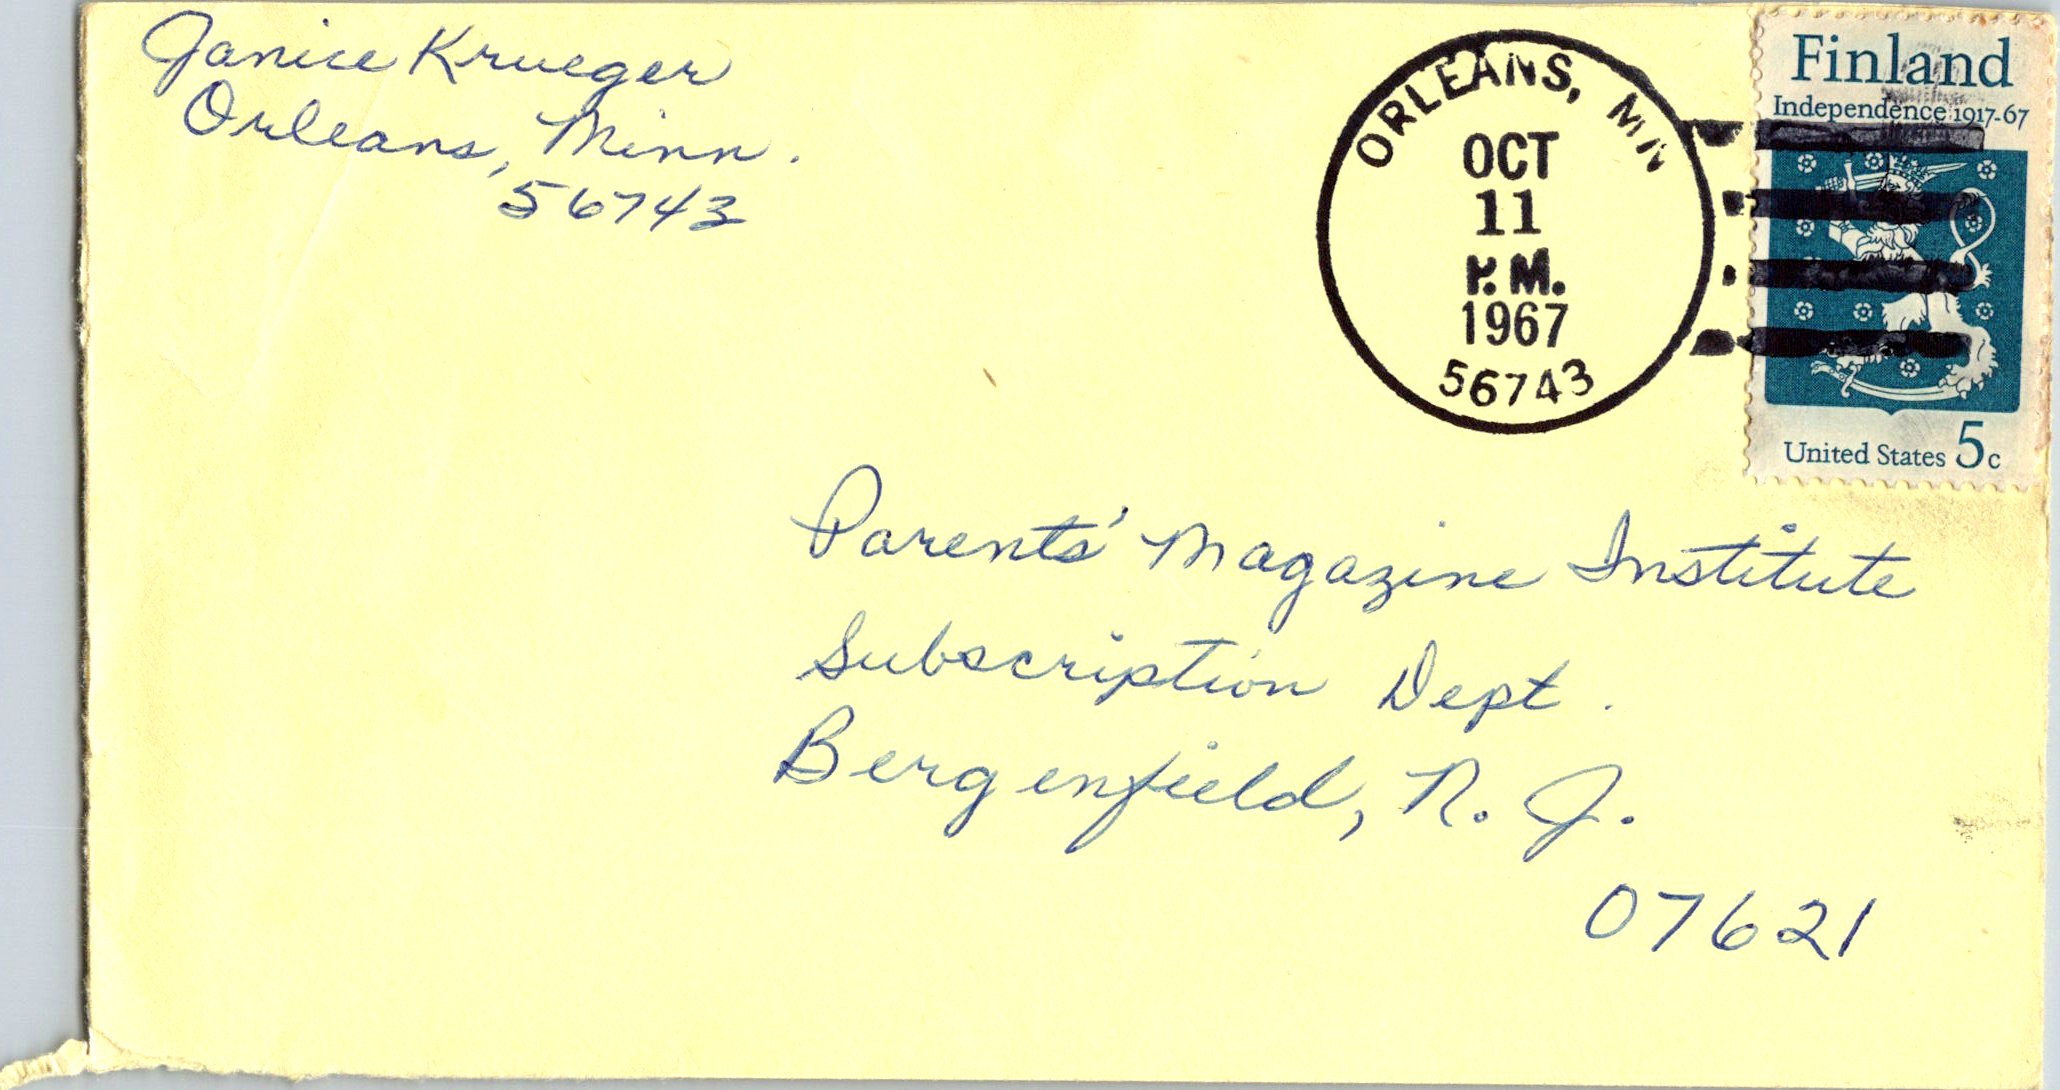 Janice Krueger
Orleans, Minn.
56743
ORLEANS, MN
OCT
11
P.M.
1967
56743
Finland
Independence 1917-67
United States 5c
Parents' Magazine Institute
Subscription Dept.
Bergenfield, N. J.
07621